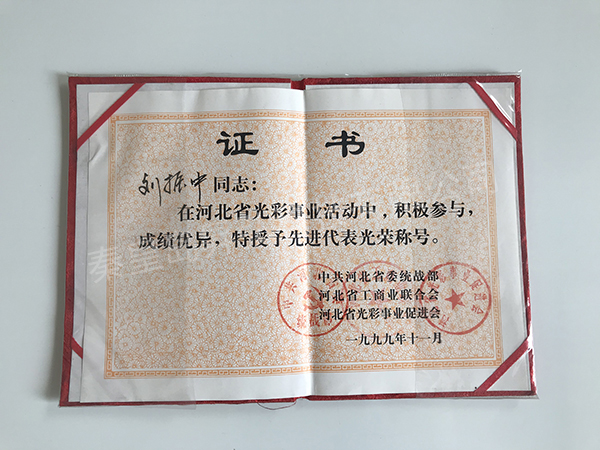 证 书
刘振中同志：
在河北省光彩事业活动中，积极参与，
成绩优异，特授予先进代表光荣称号。
中共河北省委统战部
河北省工商业联合会
河北省光彩事业促进会
一九九九年十一月